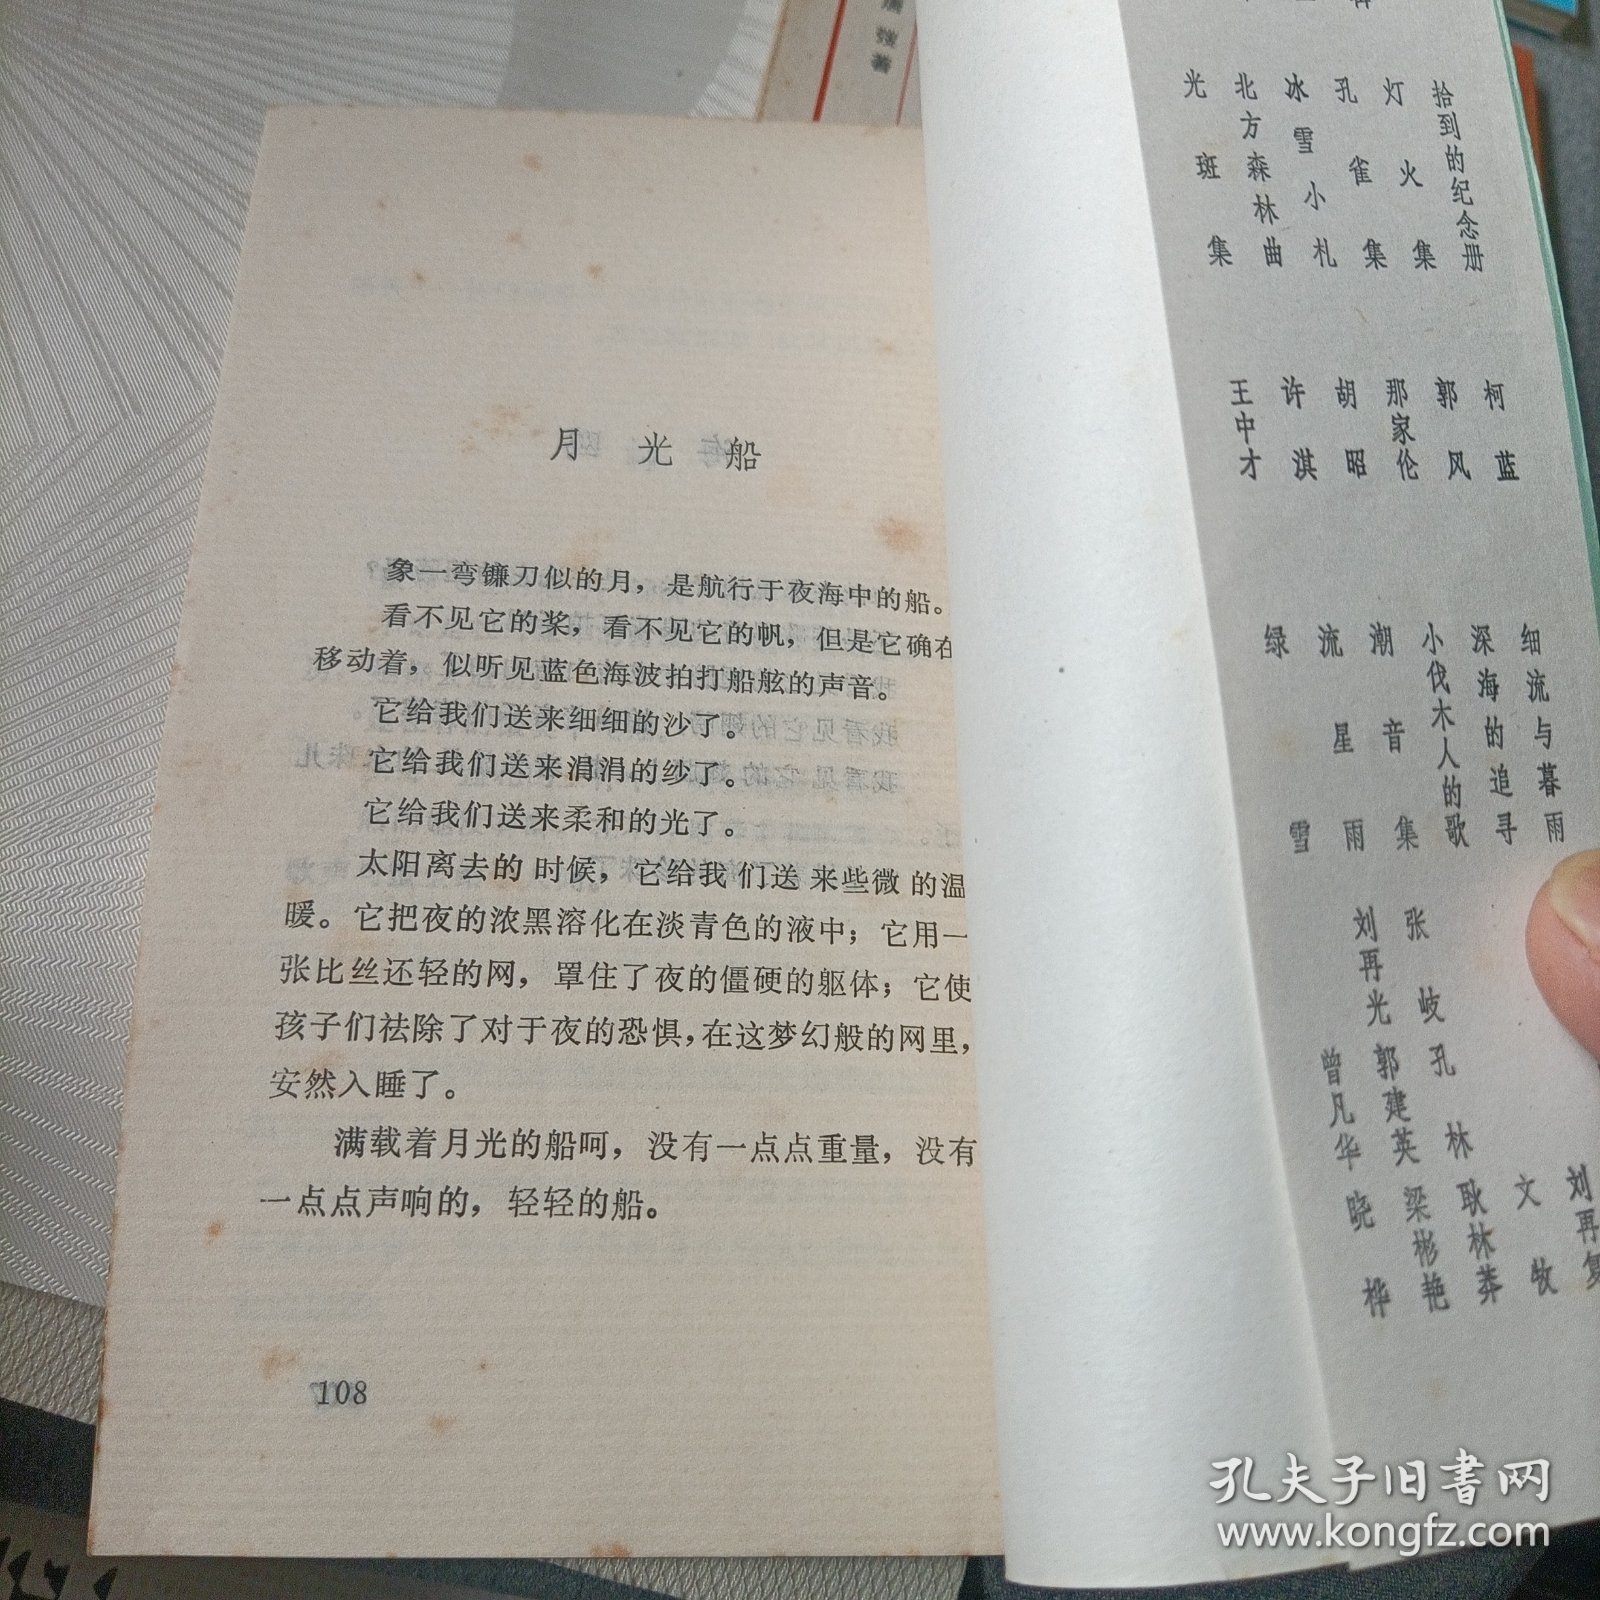 月光船
象一弯镰刀似的月，是航行于夜海中的船。
看不见它的桨，看不见它的帆，但是它确在
移动着，似听见蓝色海波拍打船舷的声音。
它给我们送来细细的沙了。
它给我们送来涓涓的纱了。
它给我们送来柔和的光了。
太阳离去的时候，它给我们送来些微的温
暖。它把夜的浓黑溶化在淡青色的液中；它用一
张比丝还轻的网，罩住了夜的僵硬的躯体；它使
孩子们祛除了对于夜的恐惧，在这梦幻般的网里，
安然入睡了。
满载着月光的船呵，没有一点点重量，没有
一点点声响的，轻轻的船。
108
拾到的纪念册
灯火集
孔雀集
冰雪小札
北方森林曲
光斑集
柯蓝
郭风
那家伦
胡昭
许淇
王中才
细流与暮雨
深海的追寻
小伐木人的歌
潮音集
流星雨
绿雪
张岐
刘再光
孔林
郭建英
曾凡华
刘再复
文牧
耿林莽
梁彬艳
晓桦
孔夫子旧书网
www.kongfz.com